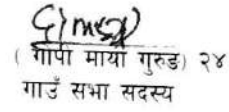 ( गोपी माया गुरुङ) २४
गाउँ सभा सदस्य